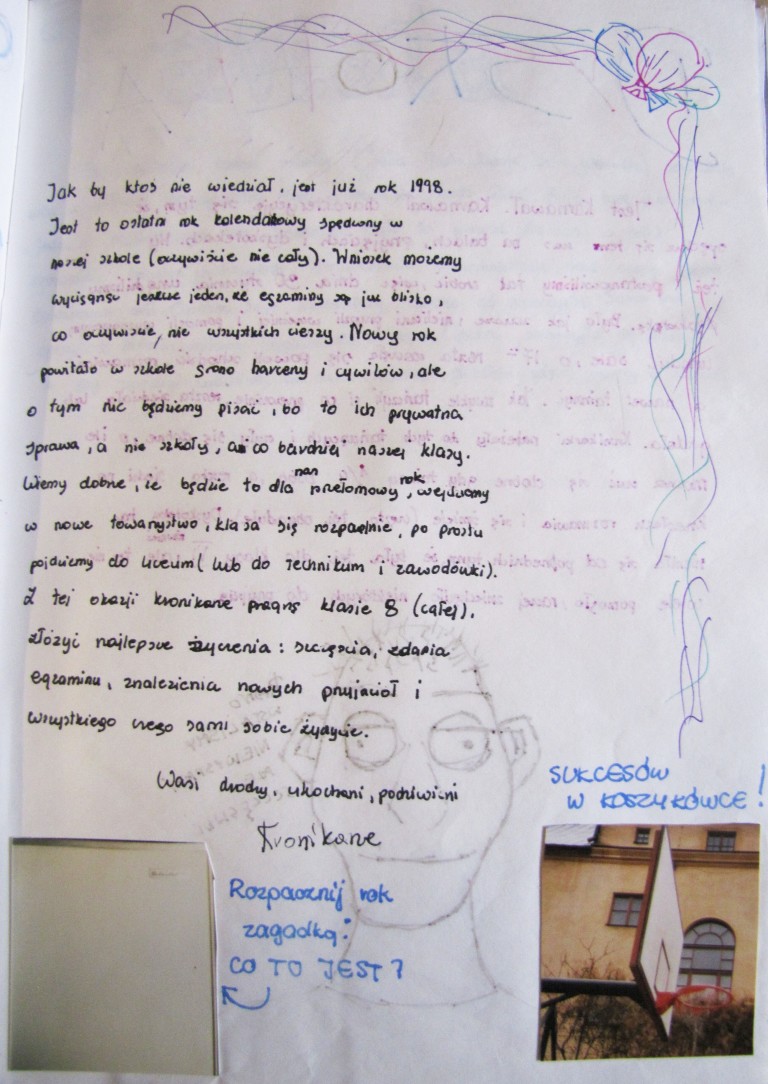 Jak by ktoś nie wiedział, jest już rok 1998.
Jest to ostatni rok kalendażowy spędzony w
naszej szkole (oczywiście nie cały). Wniosek możemy
wyciągnąć jeszcze jeden, że egzaminy są już blisko,
co oczywiście, nie wszystkich cieszy. Nowy rok
powitało w szkole grono harcerzy i cywilów, ale
o tym nic będziemy pisać, bo to ich prywatna
sprawa, a nie szkoły, a co bardziej naszej klasy.
Wiemy dobrze, że będzie to dla nas przełomowy rok, wejdziemy
w nowe towarzystwo, klasa się rozpadnie, po prostu
pójdziemy do liceum (lub do technikum i zawodówki).
Z tej okazji kronikarze pragną klasie 8 (całej),
złożyć najlepsze życzenia: szczęścia, zdania
egzaminu, znalezienia nowych przyjaciół i
wszystkiego czego sami sobie życzycie.
Wasi drodzy, ukochani, podziwiani
Kronikarze
SUKCESÓW
W KOSZYKÓWCE!
Rozpocznij rok
zagadką:
CO TO JEST?